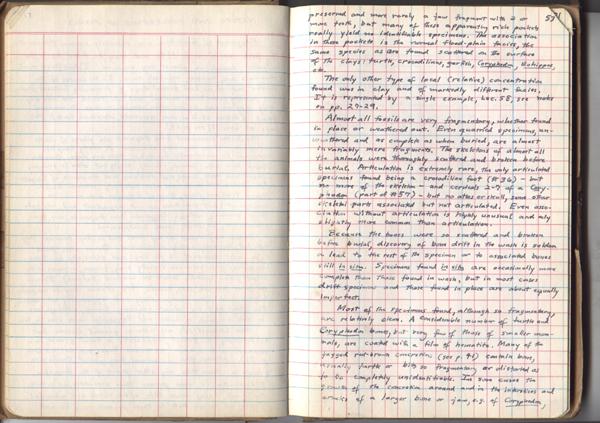 53
preserved and more rarely a jaw fragment with 2 or
more teeth, but many of these apparently rich pockets
really yield no identifiable specimens. The association
in these pockets is the normal flood-plain facies, the
same species as are found scattered on the surface
of the clays: turtle, crocodilians, garfish, Coryphodon, Eohippus,
etc.
The only other type of local (relative) concentration
found was in clay and of markedly different facies.
It is represented by a single example, Loc. 58, see notes
on pp. 27-29.
Almost all fossils are very fragmentary, whether found
in place or weathered out. Even quarried specimens, un-
weathered and as complete as when buried, are almost
invariably mere fragments. The skeletons of almost all
the animals were thoroughly scattered and broken before
burial. Articulation is extremely rare, the only articulated
specimens found being a crocodilian foot (#36) - but
no more of the skeleton - and cervicals 2-7 of a Cory-
phodon (part of #57) - but no atlas or skull, some other
skeletal parts associated but not articulated. Even asso-
ciation without articulation is highly unusual and only
slightly more common than articulation.
Because the bones were so scattered and broken
before burial, discovery of bone drift in the wash is seldom
a lead to the rest of the specimen or to associated bones
still in situ. Specimens found in situ are occasionally more
complete than those found in wash, but in most cases
drift specimens and those found in place are about equally
imperfect.
Most of the specimens found, although so fragmentary,
are relatively clean. A considerable number of turtle and
Coryphodon bones, but very few of those of smaller mam-
mals, are coated with a film of hematite. Many of the
jagged red-brown concretions (see p. 41) contain bone,
usually turtle or bits so fragmentary or distorted as
to be completely unidentifiable. In some cases the
growth of the concretion around and in the interstices and
cracks of a larger bone or jaw, e.g. of Coryphodon,